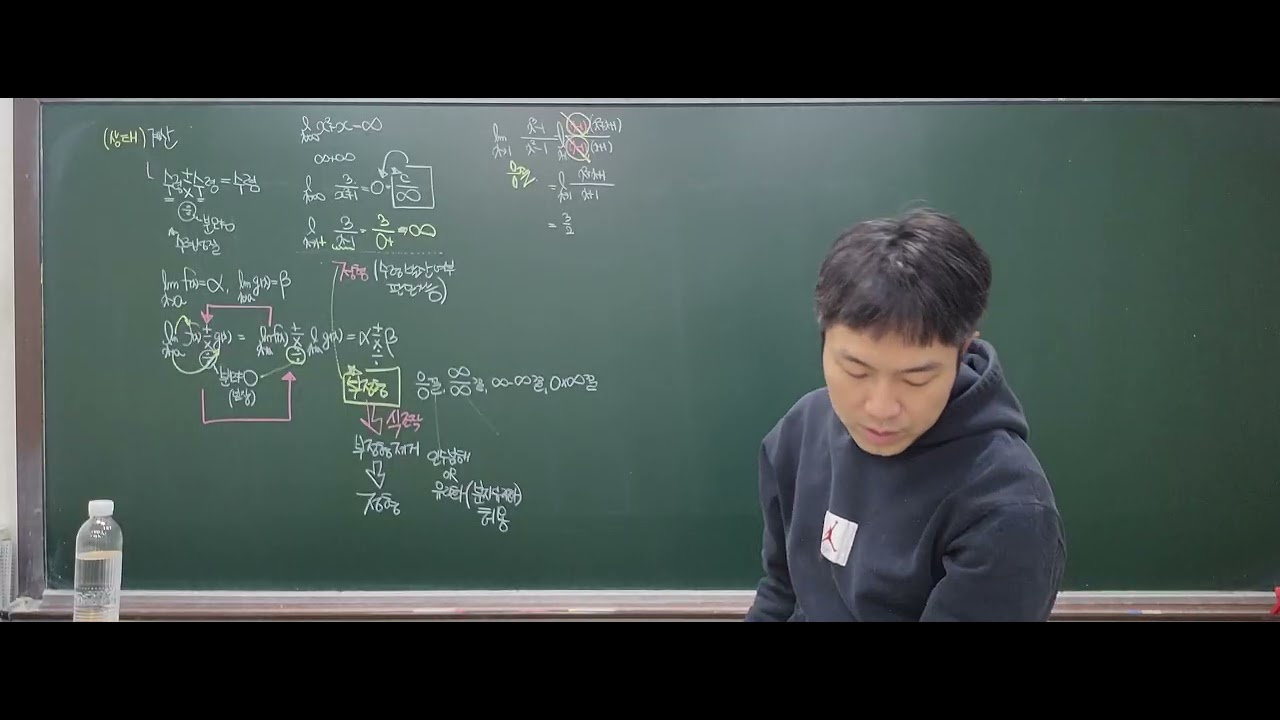 (상태) 계산
수렴±×수렴 = 수렴
÷
lim x→a f(x)=α, lim x→a g(x)=β
lim x→a f(x) ± × ÷ g(x) = lim x→a f(x) ± × ÷ lim x→a g(x) = α ± × ÷ β
분모≠0
lim x→∞ x²+x = ∞
∞+∞
lim x→∞ 3/(x+1) = 0 = c/∞
lim x→1+ 3/(x-1) = 3/0+ = ∞
정형 (수렴발산여부
판단가능)
부정형
0/0꼴, ∞/∞꼴, ∞-∞꼴, 0×∞꼴
식조작
부정형제거
정형
인수분해
OR
유리화
허용
lim x→1 (x³-1)/(x²-1) = lim x→1 (x-1)(x²+x+1)/(x-1)(x+1)
0/0꼴
= lim x→1 (x²+x+1)/(x+1)
= 3/2